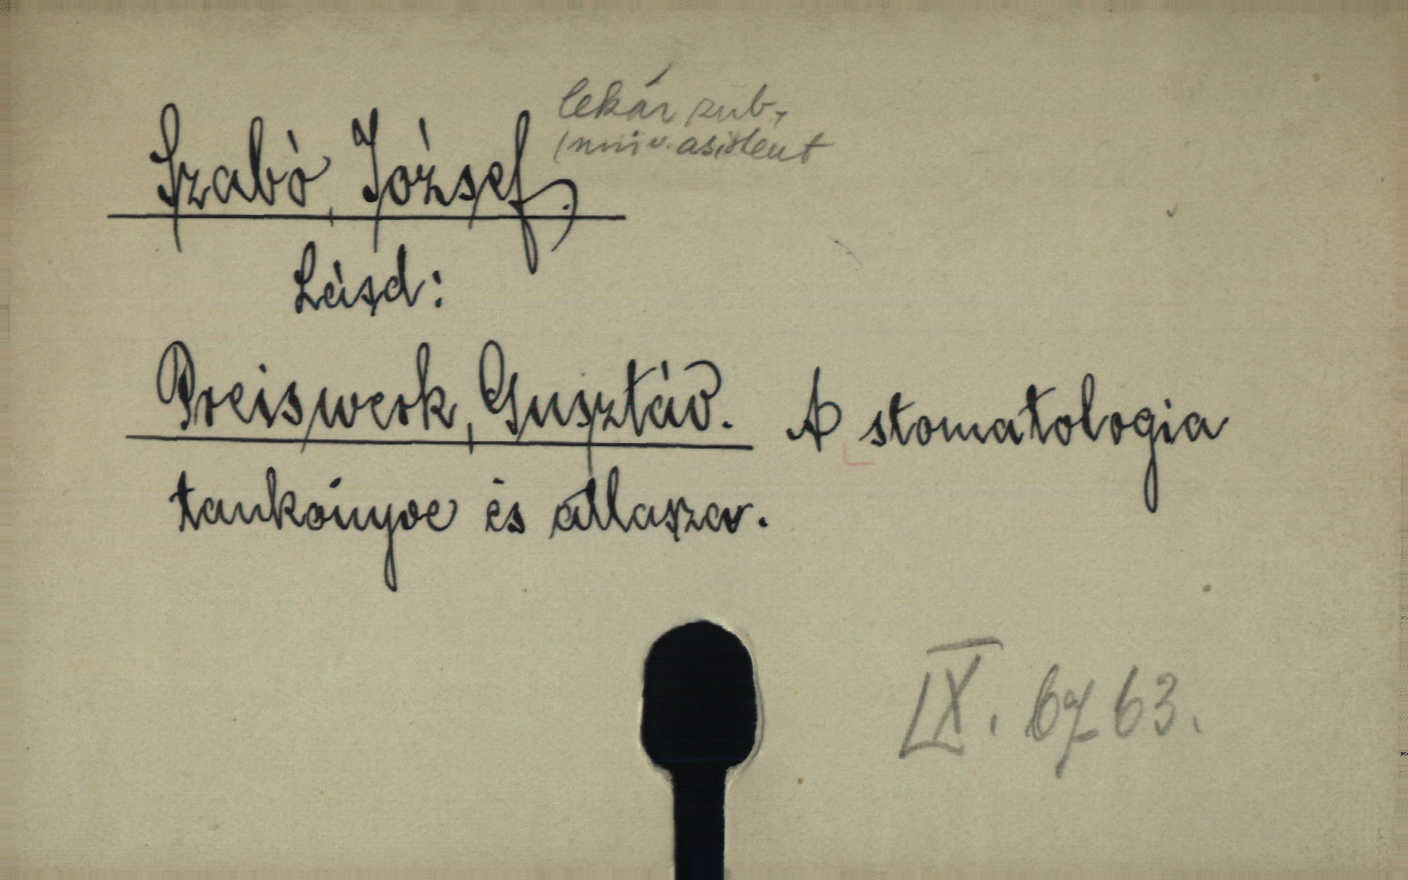 Szabó, József.
lekár zub.,
univ. asistent
Lásd:
Preiswerk, Gusztáv. A stomatologia
tankönyve és atlasza.
IX. 6763.